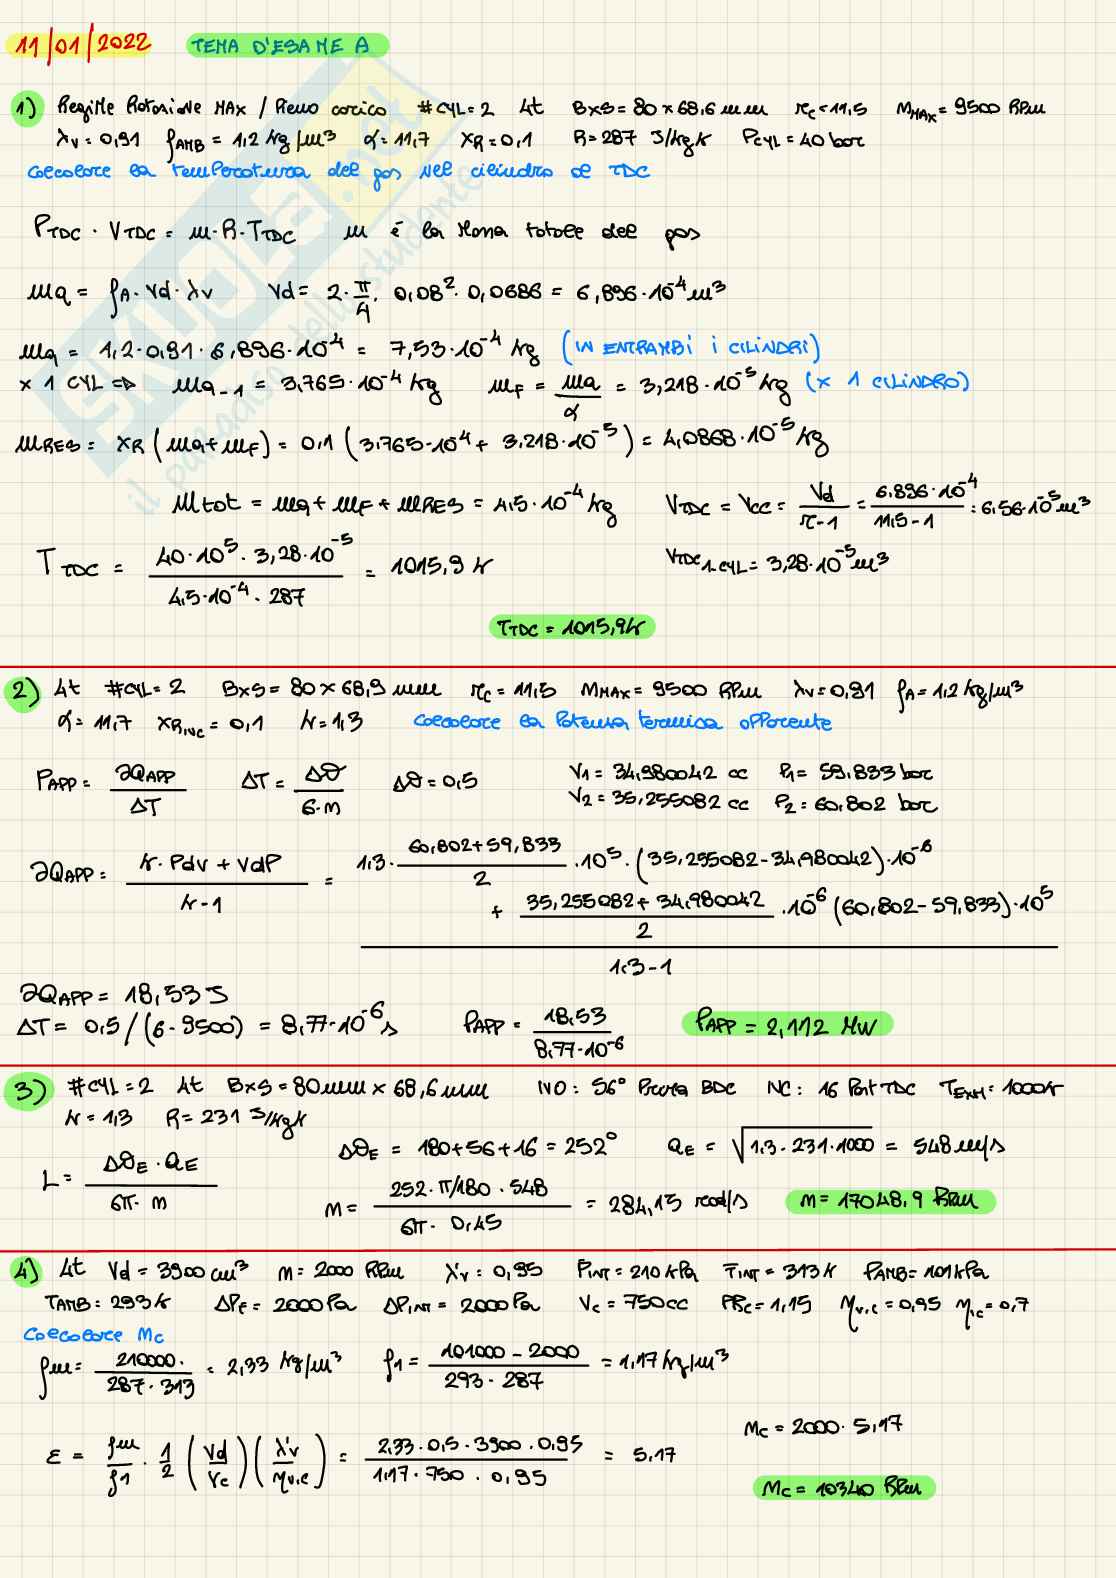 11/01/2022 TEMA D'ESAME A
1) Regime Rotazione MAX / Pieno carico #CYL=2 4t BxS=80x68,6mm rc=11,5 MMAX=9500 RPM
λv=0,91 ρAMB=1,2 kg/m³ α=11,7 XR=0,1 R=287 J/kgK PCYL=40 bar
Calcolare la temperatura del gas nel cilindro al TDC
PTDC · VTDC = m·R·TTDC m è la massa totale del gas
ma = ρA·Vd·λv Vd = 2·π/4·0,08²·0,0686 = 6,896·10⁻⁴ m³
ma = 1,2·0,91·6,896·10⁻⁴ = 7,53·10⁻⁴ kg (IN ENTRAMBI i CILINDRI)
x 1 CYL ⇒ ma-1 = 3,765·10⁻⁴ kg mF = ma/α = 3,218·10⁻⁵ kg (x 1 CILINDRO)
mRES = XR (ma+mF) = 0,1 (3,765·10⁻⁴ + 3,218·10⁻⁵) = 4,0868·10⁻⁵ kg
Mtot = ma + mF + mRES = 4,5·10⁻⁴ kg VTDC = Vcc = Vd/(r-1) = 6,896·10⁻⁴/(11,5-1) = 6,56·10⁻⁵ m³
TTDC = (40·10⁵ · 3,28·10⁻⁵)/(4,5·10⁻⁴ · 287) = 1015,9 K VTDC 1-CYL = 3,28·10⁻⁵ m³
TTDC = 1015,9K
2) 4t #CYL=2 BxS=80x68,9 mm rc=11,5 MMAX=9500 RPM λv=0,91 ρA=1,2 kg/m³
α=11,7 XR,IVC=0,1 k=1,3 Calcolare la Potenza termica apparente
PAPP = ∂QAPP/ΔT ΔT = Δϑ/6·m Δϑ=0,5 V1=34,980042 cc P1=59,833 bar
V2=35,255082 cc P2=60,802 bar
∂QAPP = (k·PdV + VdP)/(k-1) = 1,3·(60,802+59,833)/2 ·10⁵·(35,255082-34,980042)·10⁻⁶
+ (35,255082+34,980042)/2 ·10⁻⁶ (60,802-59,833)·10⁵
1,3-1
∂QAPP = 18,53 J
ΔT = 0,5/(6·9500) = 8,77·10⁻⁶ s PAPP = 18,53/8,77·10⁻⁶ PAPP = 2,112 MW
3) #CYL=2 4t BxS=80mm x 68,6mm IVO: 56° Prima BDC IVC: 16 Post TDC TEXH=1000K
k=1,3 R=231 J/kgK
L = (ΔϑE·aE)/(6π·m) ΔϑE = 180+56+16 = 252° aE = √(1,3·231·1000) = 548 m/s
m = (252·π/180·548)/(6π·0,45) = 284,15 rad/s m = 17048,9 RPM
4) 4t Vd = 3900 cm³ m = 2000 RPM λ'v = 0,95 PINT = 210 kPa TINT = 313K PAMB=101kPa
TAMB=293K ΔPF=2000Pa ΔPINT=2000Pa Vc=750cc PRc=1,15 ηv,c=0,95 ηic=0,7
Calcolare Mc
ρm = 210000·/(287·313) = 2,33 kg/m³ ρ1 = (101000-2000)/(293·287) = 1,17 kg/m³
ε = ρm/ρ1 · 1/2 (Vd/Vc)(λ'v/ηv,c) = (2,33·0,5·3900·0,95)/(1,17·750·0,95) = 5,17 Mc = 2000·5,17
Mc = 10340 RPM